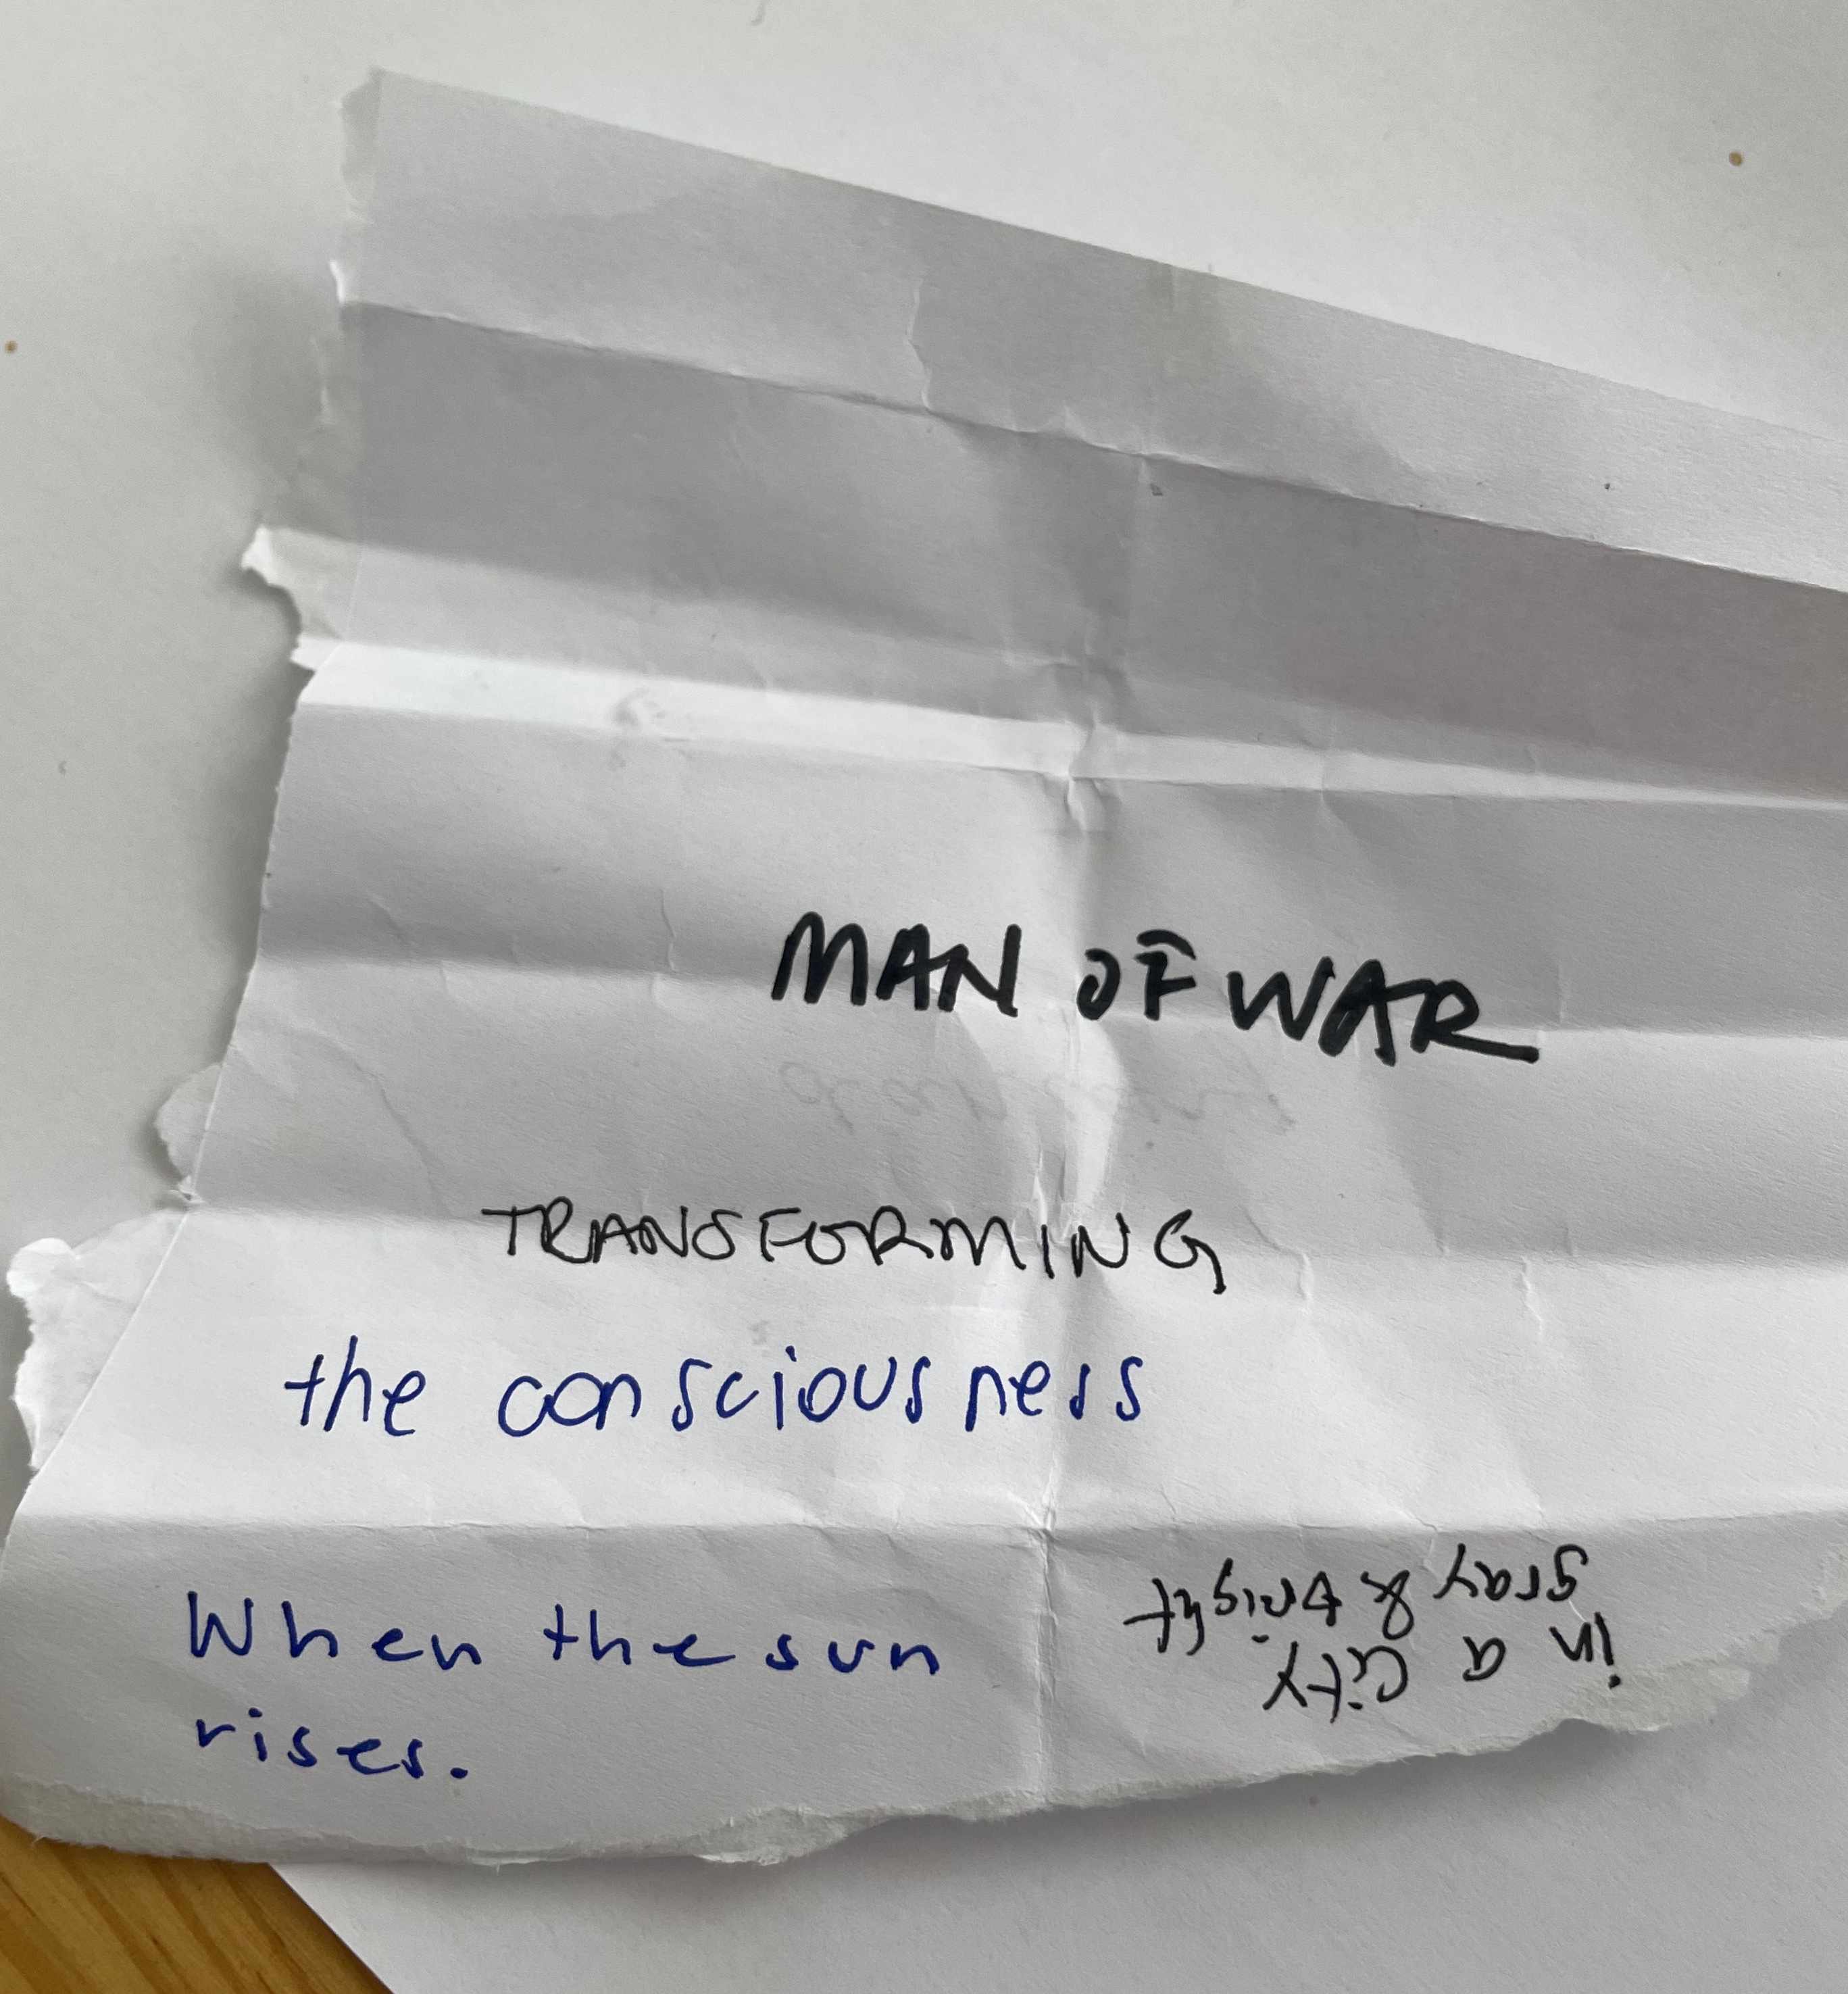 MAN OF WAR
TRANSFORMING
the consciousness
When the sun
rises.
in a City
gray & bright